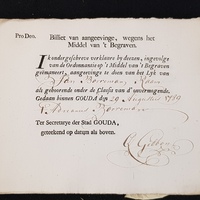 Pro Deo.
Billiet van aangeevinge, wegens het
Middel van 't Begraven.
IK ondergeschreve verklaare by deezen, ingevolge
van de Ordonnantie op 't Middel van 't Begraven
geëmaneert, aangeevinge te doen van het Lyk van
Jan
als gehoorende onder de Classis van d'onvermogende.
Gedaan binnen GOUDA den 29 Augustus
Ter Secretarye der Stad GOUDA,
geteekend op datum als boven.